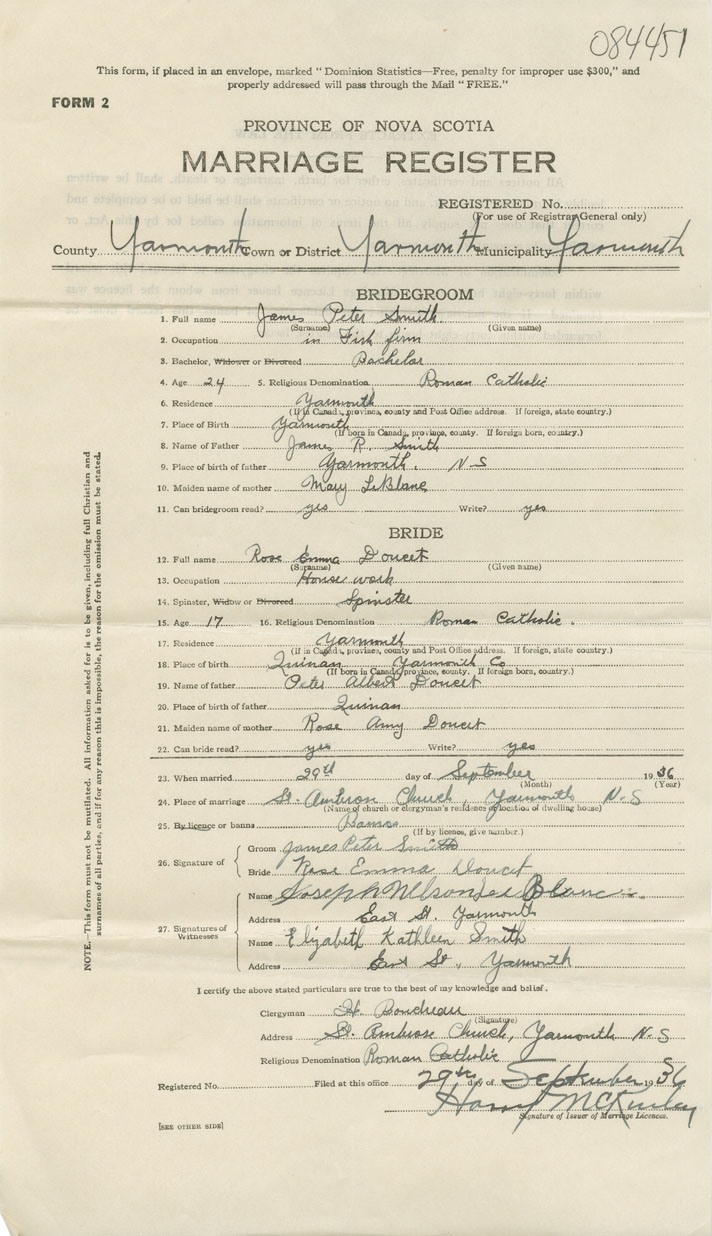 084451
This form, if placed in an envelope, marked "Dominion Statistics—Free, penalty for improper use $300," and
properly addressed will pass through the Mail "FREE."
FORM 2
PROVINCE OF NOVA SCOTIA
MARRIAGE REGISTER
REGISTERED No.
(For use of Registrar General only)
County Yarmouth Town or District Yarmouth Municipality Yarmouth
BRIDEGROOM
1. Full name James Peter Smith
(Surname) (Given name)
2. Occupation in Fish firm
3. Bachelor, Widower or Divorced Bachelor
4. Age 24 5. Religious Denomination Roman Catholic
6. Residence Yarmouth
(If in Canada, province, county and Post Office address. If foreign, state country.)
7. Place of Birth Yarmouth
(If born in Canada, province, county. If foreign born, country.)
8. Name of Father James R. Smith
9. Place of birth of father Yarmouth. N-S
10. Maiden name of mother Mary LeBlanc
11. Can bridegroom read? yes Write? yes
BRIDE
12. Full name Rose Emma Doucet
(Surname) (Given name)
13. Occupation House work
14. Spinster, Widow or Divorced Spinster
15. Age 17 16. Religious Denomination Roman Catholic.
17. Residence Yarmouth
(If in Canada, province, county and Post Office address. If foreign, state country.)
18. Place of birth Quinan Yarmouth Co
(If born in Canada, province, county. If foreign born, country.)
19. Name of father Peter Albert Doucet
20. Place of birth of father Quinan
21. Maiden name of mother Rose Amy Doucet
22. Can bride read? yes Write? yes
23. When married 29th day of September 1936
(Month) (Year)
24. Place of marriage St. Ambrose Church, Yarmouth N-S
(Name of church or clergyman's residence or location of dwelling house)
25. By licence or banns Banns
(If by licence, give number.)
26. Signature of
Groom James Peter Smith
Bride Rose Emma Doucet
27. Signatures of Witnesses
Name Joseph Nelson Le Blanc
Address East St. Yarmouth
Name Elizabeth Kathleen Smith
Address East St, Yarmouth
I certify the above stated particulars are true to the best of my knowledge and belief.
Clergyman H. Boudreau
(Signature)
Address St. Ambrose Church, Yarmouth N-S
Religious Denomination Roman Catholic
Registered No. Filed at this office 29th day of September 1936
Harry McKinley
Signature of Issuer of Marriage Licences.
[SEE OTHER SIDE]
NOTE.—This form must not be mutilated. All information asked for is to be given, including full Christian and
surnames of all parties, and if for any reason this is impossible, the reason for the omission must be stated.